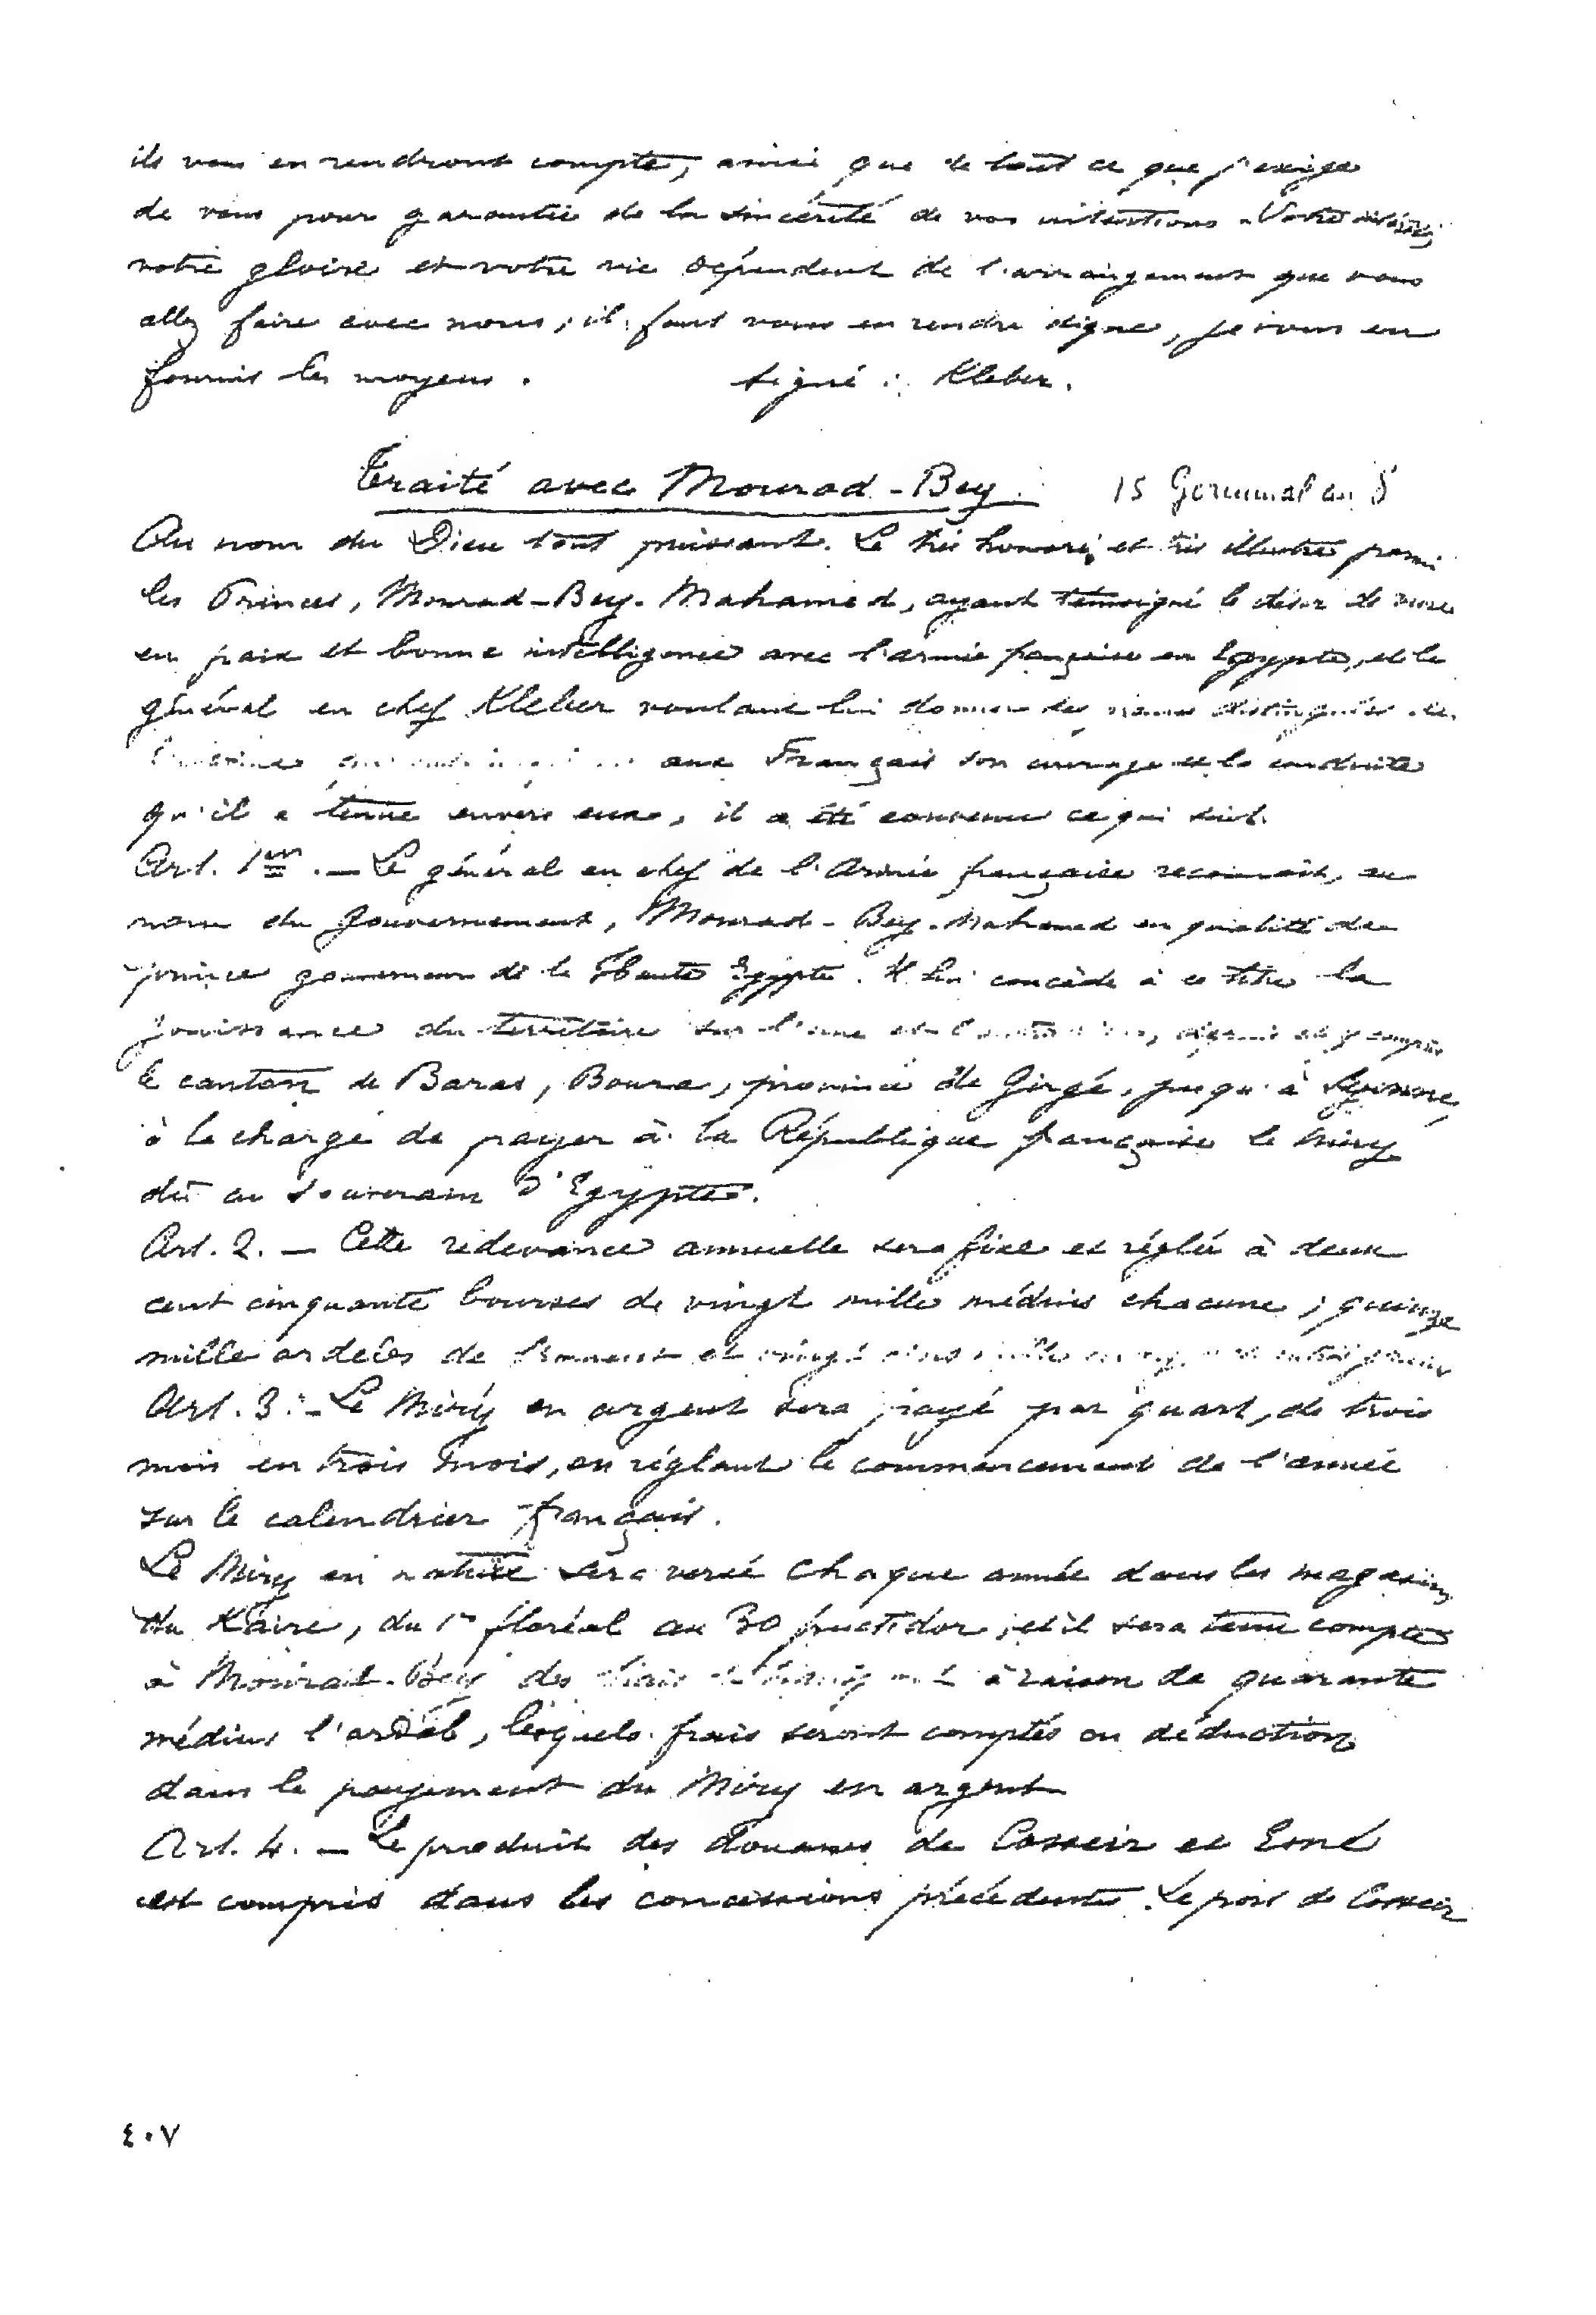 ils vous en rendront compte, ainsi que de tout ce que j'exige
de vous pour garantie de la sincérité de vos intentions. Votre
votre gloire et votre vie dépendent de l'arrangement que vous
allez faire avec nous, il faut vous en rendre digne, je vous en
fournis les moyens. Signé : Kleber.
Traité avec Mourad-Bey. 15 Germinal an 8
Au nom du Dieu tout puissant. Le très honoré et très illustre parmi
les Princes, Mourad-Bey-Mahamed, ayant témoigné le désir de vivre
en paix et bonne intelligence avec l'armée française en Egypte, et le
général en chef Kleber voulant lui donner des
aux Français son courage et la conduite
qu'il a tenue envers eux, il a été convenu ce qui suit.
Art. 1er. — Le général en chef de l'Armée française reconnaît, au
nom du Gouvernement, Mourad-Bey-Mahamed en qualité de
prince gouverneur de la Haute Egypte. Il lui concède à ce titre la
jouissance du territoire sur l'une et l'autre
le canton de Baras, Boura, province de Girgé, jusqu'à Syenne,
à la charge de payer à la République française le Miry
dû au Souverain d'Egypte.
Art. 2. — Cette redevance annuelle sera fixe et réglée à deux
cent cinquante bourses de vingt mille médins chacune, quinze
mille ardebs de froment et vingt
Art. 3. — Le Miry en argent sera payé par quart, de trois
mois en trois mois, en réglant le commencement de l'année
sur le calendrier français.
Le Miry en nature sera versé chaque année dans les magasins
du Kaire, du 1er floréal au 30 fructidor, et il sera tenu compte
à Mourad-Bey des à raison de quarante
médins l'ardeb, lesquels frais seront comptés en déduction
dans le payement du Miry en argent
Art. 4. — Le produit des douanes de Cosseir et Esné
est compris dans les concessions précédentes. Le port de Cosseir
٤٠٧